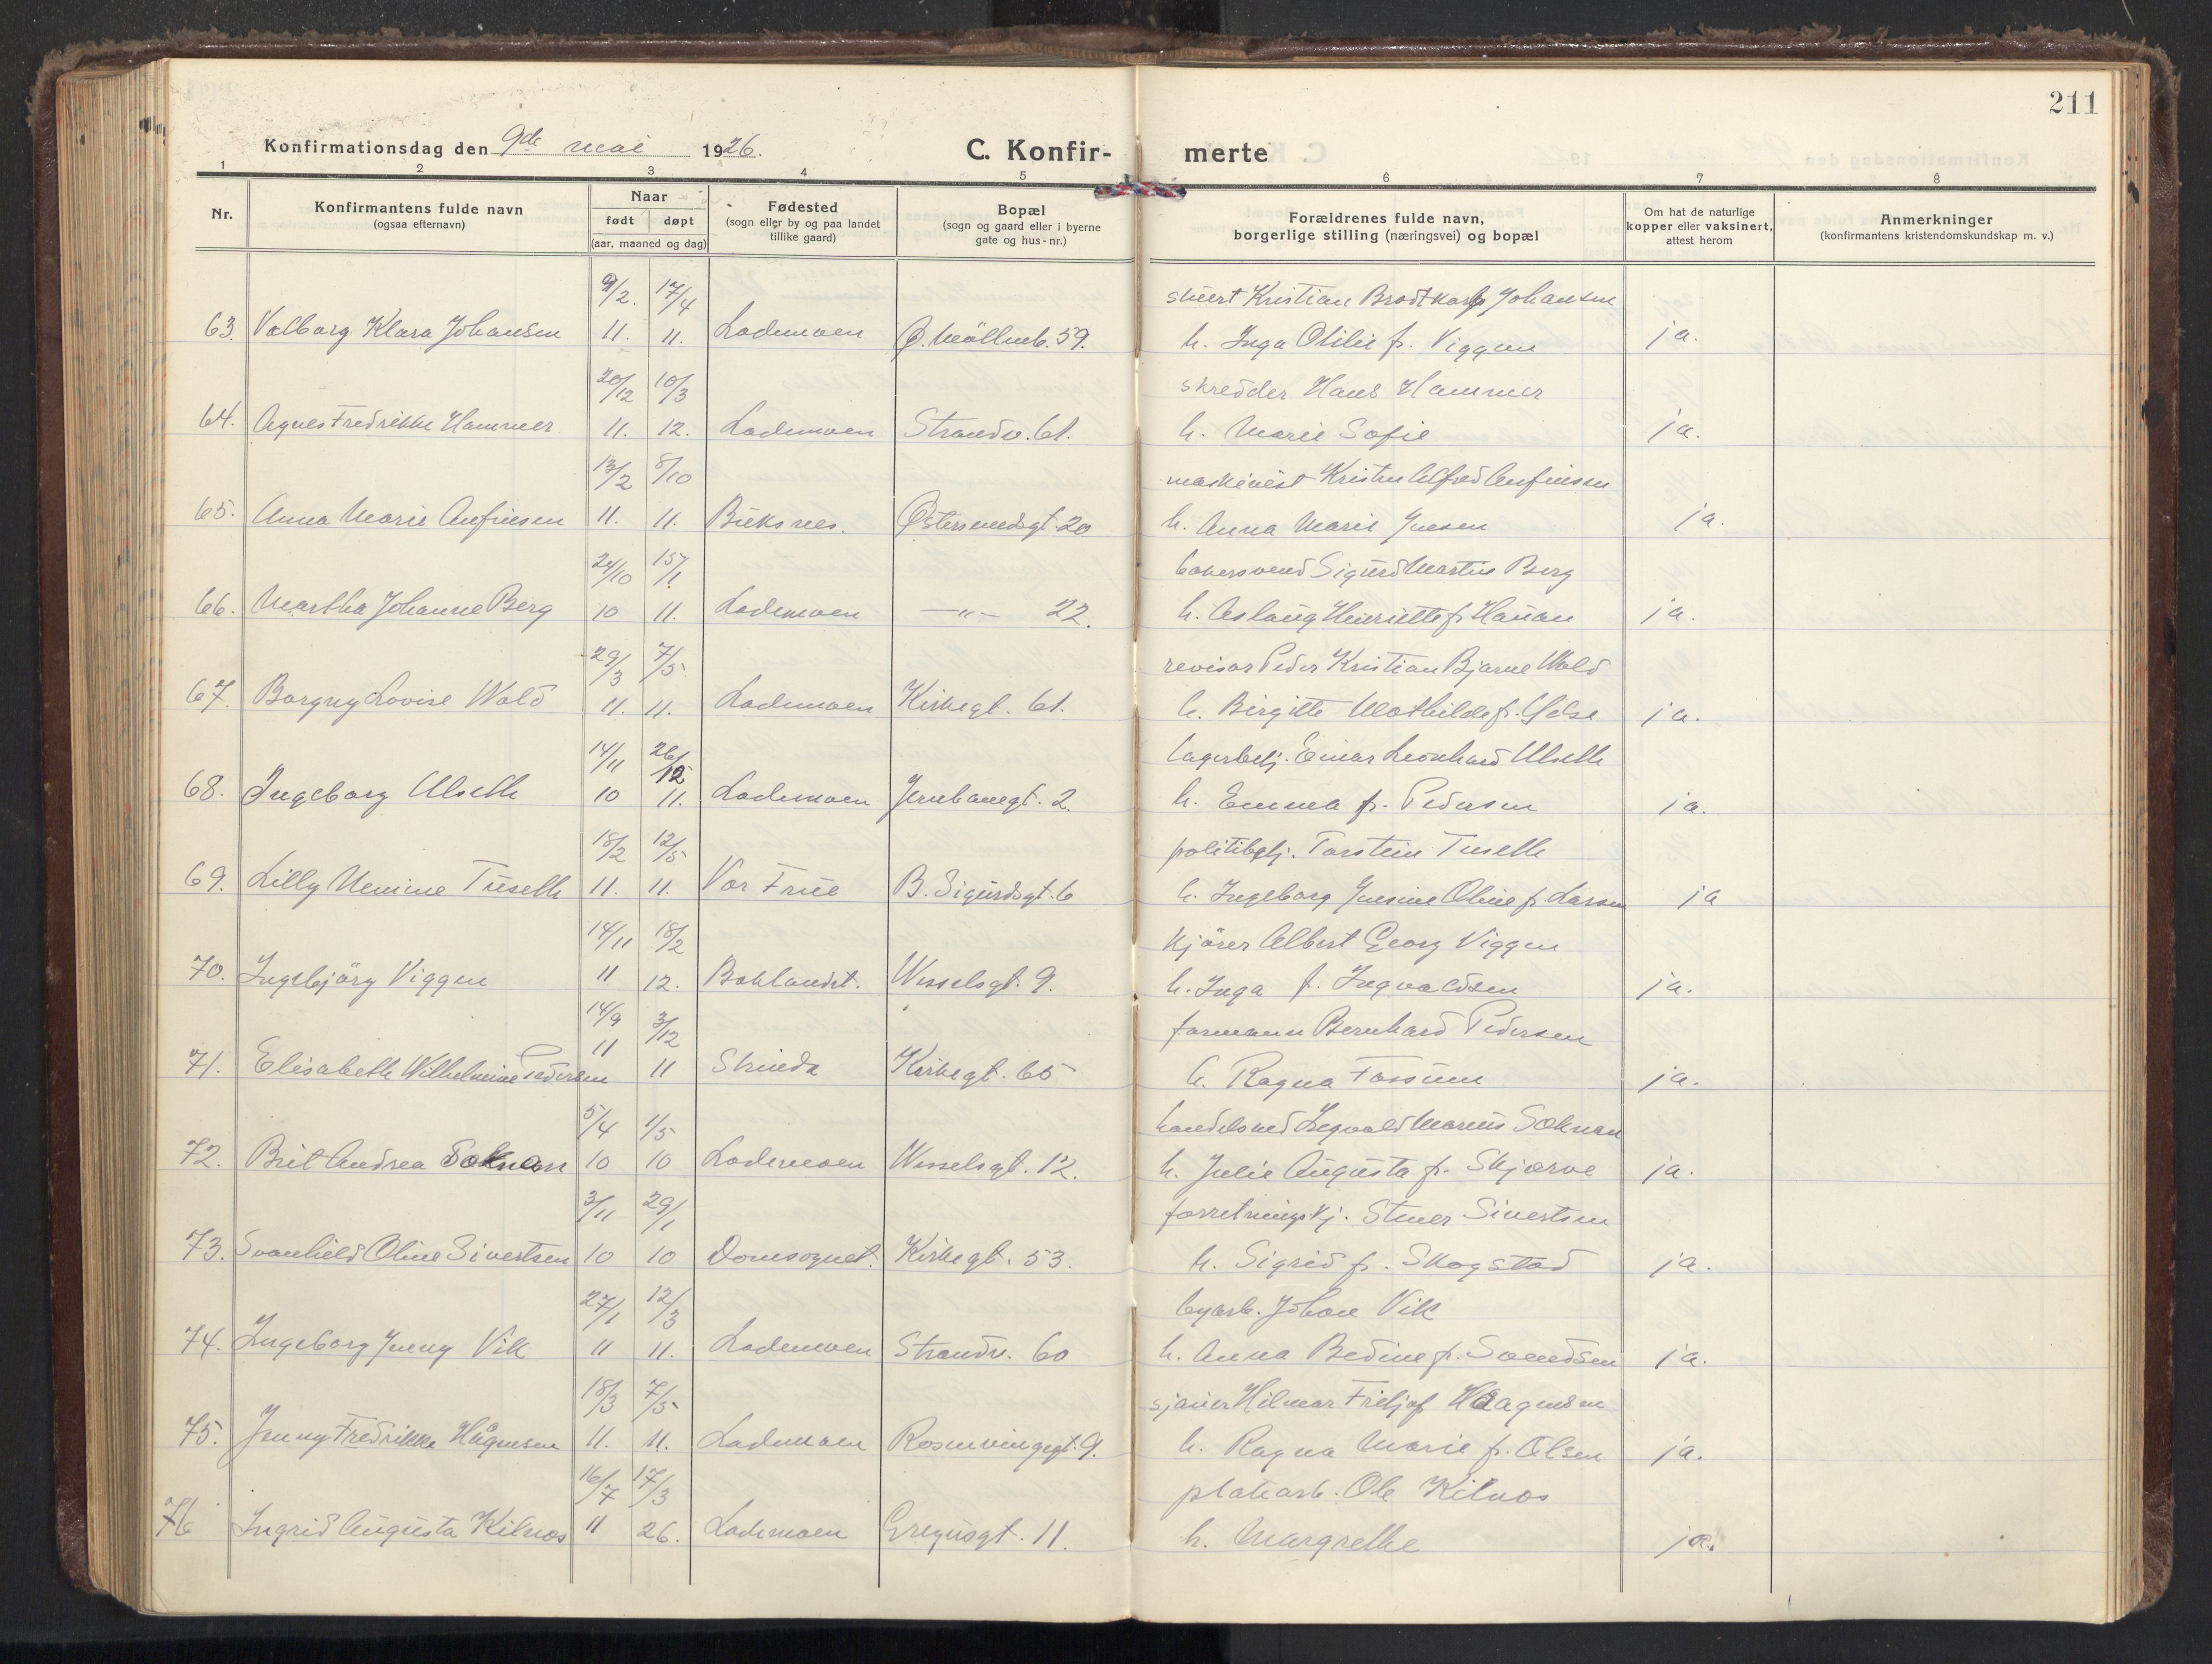 211
Konfirmationsdag den 9de mai 1926.
C. Konfir- merte
1 2 3 4 5 6 7 8
Nr.
Konfirmantens fulde navn
(ogsaa efternavn)
Naar
født døpt
(aar, maaned og dag)
Fødested
(sogn eller by og paa landet
tillike gaard)
Bopæl
(sogn og gaard eller i byerne
gate og hus-nr.)
Forældrenes fulde navn,
borgerlige stilling (næringsvei) og bopæl
Om hat de naturlige
kopper eller vaksinert,
attest herom
Anmerkninger
(konfirmantens kristendomskundskap m. v.)
9/2. 17/4 stuert Kristian Brodtkorb Johansen
63. Valborg Klara Johansen 11. 11. Lademoen Ø. Möllenb. 59. h. Inga Otilie f. Viggen ja.
20/12 10/3 skredder Hans Hammer
64. Agnes Fredrikke Hammer 11. 12. Lademoen Strandv. 61. h. Marie Sofie ja.
13/2 8/10 maskinist Kristen Alfred Anfinsen
65. Anna Marie Anfinsen 11. 11. Buksnes. Østersundsgt. 20 h. Anna Marie Juesen ja.
24/10 15/1 bakersvend Sigurd Martin Berg
66. Martha Johanne Berg 10 11. Lademoen —"— 22. h. Aslaug Henriette f. Hanan ja.
29/3 7/5 revisor Peder Kristian Bjarne Wold
67. Borgny Lovise Wold 11. 11. Lademoen Kirkegt. 61. h. Birgitte Mathilde f. ja.
14/11 26/12 lagerbetj. Einar Leonhard Ulseth
68. Ingeborg Ulseth 10 11. Lademoen Jernbanegt. 2. h. Emma f. Pedersen ja.
18/2 12/5 politibetj. Torstein Tuseth
69. Lilly Nemine Tuseth 11. 11. Vor Frue B. Sigurdsgt. 6 h. Ingeborg Jensine Oline f. Larsen ja
14/11 18/2 kjörer Albert Georg Viggen
70. Ingebjörg Viggen 11 12. Baklandet. Wesselsgt. 9. h. Inga f. Ingvaldsen ja.
14/9 3/12 formann Bernhard Pedersen
71. Elisabeth Wilhelmine Pedersen 11 11 Strinda Kirkegt. 65 h. Ragna Fossum ja.
5/4 1/5 handelsmed Ingvald Marius Soknan
72. Brit Andrea Soknan 10 10 Lademoen Wesselsgt. 12. h. Julie Augusta f. Skjærve ja.
3/11 29/1 forretningsbj. Stener Sivertsen
73. Svanhild Oline Sivertsen 10 10 Domsognet. Kirkegt. 53. h. Sigrid f. Skogstad ja.
27/1 12/3 byarb. Johan Vik
74. Ingeborg Jenny Vik 11 11. Lademoen Strandv. 60 h. Anna Bedine f. Svendsen ja.
18/3 7/5 sjauer Hilmar Fritjof Haagensen
75. Jenny Fredrikke Hågensen 11. 11. Lademoen Rosenvingegt. 9. h. Ragna Marie f. Olsen ja.
16/7 17/3 platearb. Ole Kilnes
76 Ingrid Augusta Kilnes 11 26. Lademoen Gregusgt. 11. h. Margrethe ja.